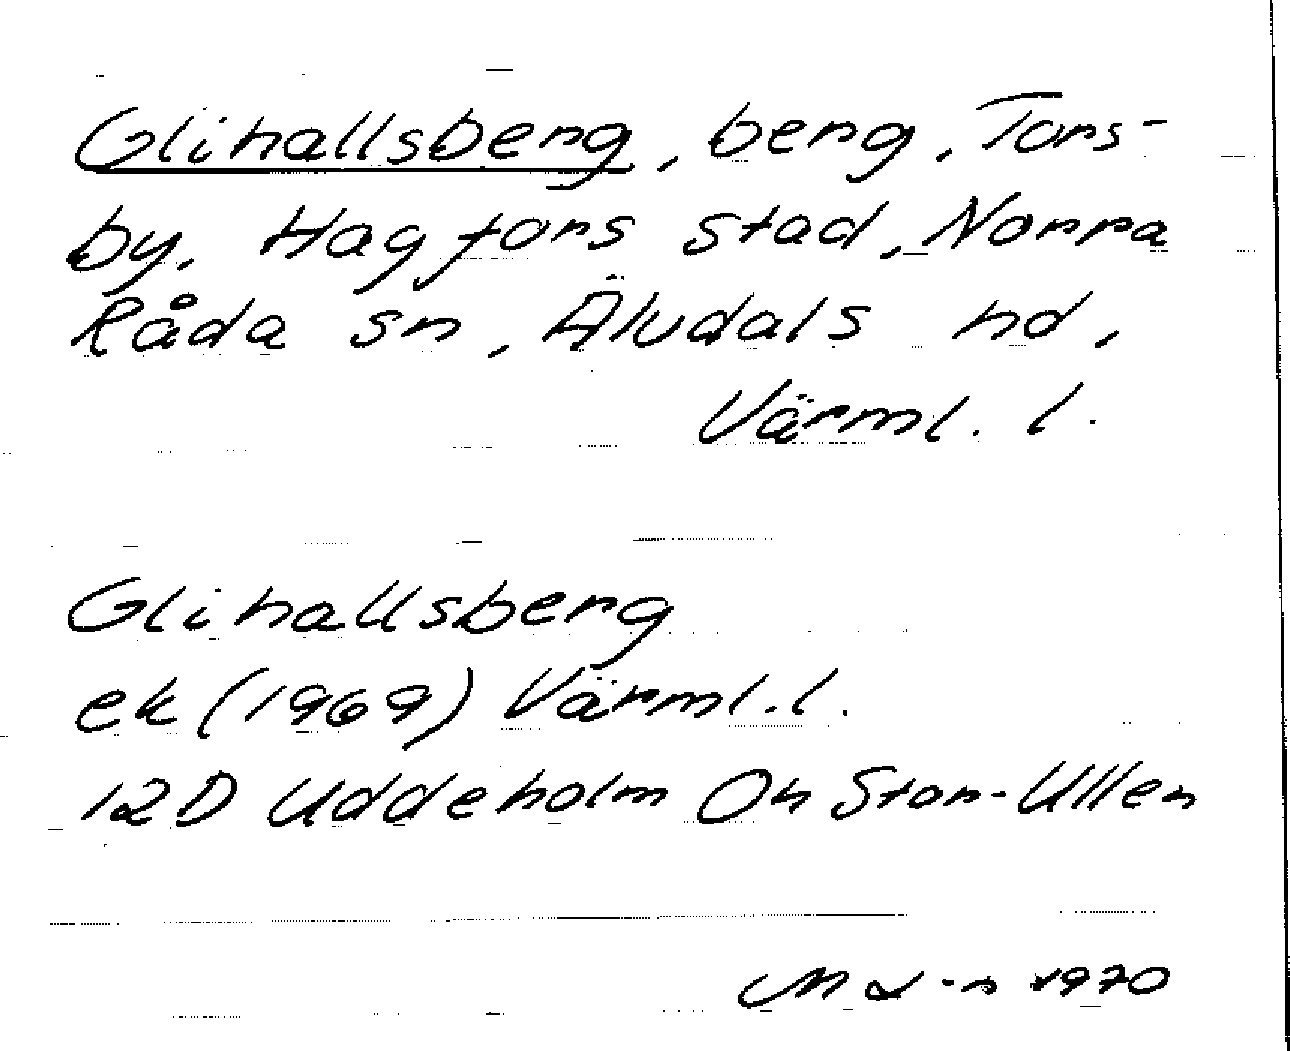 Glihallsberg, berg, Tors-
by, Hagfors stad, Norra
Råda sn, Älvdals hd,
Värml. l.
Glihallsberg
ek (1969) Värml. l.
12D Uddeholm Stor-Ullen
1970